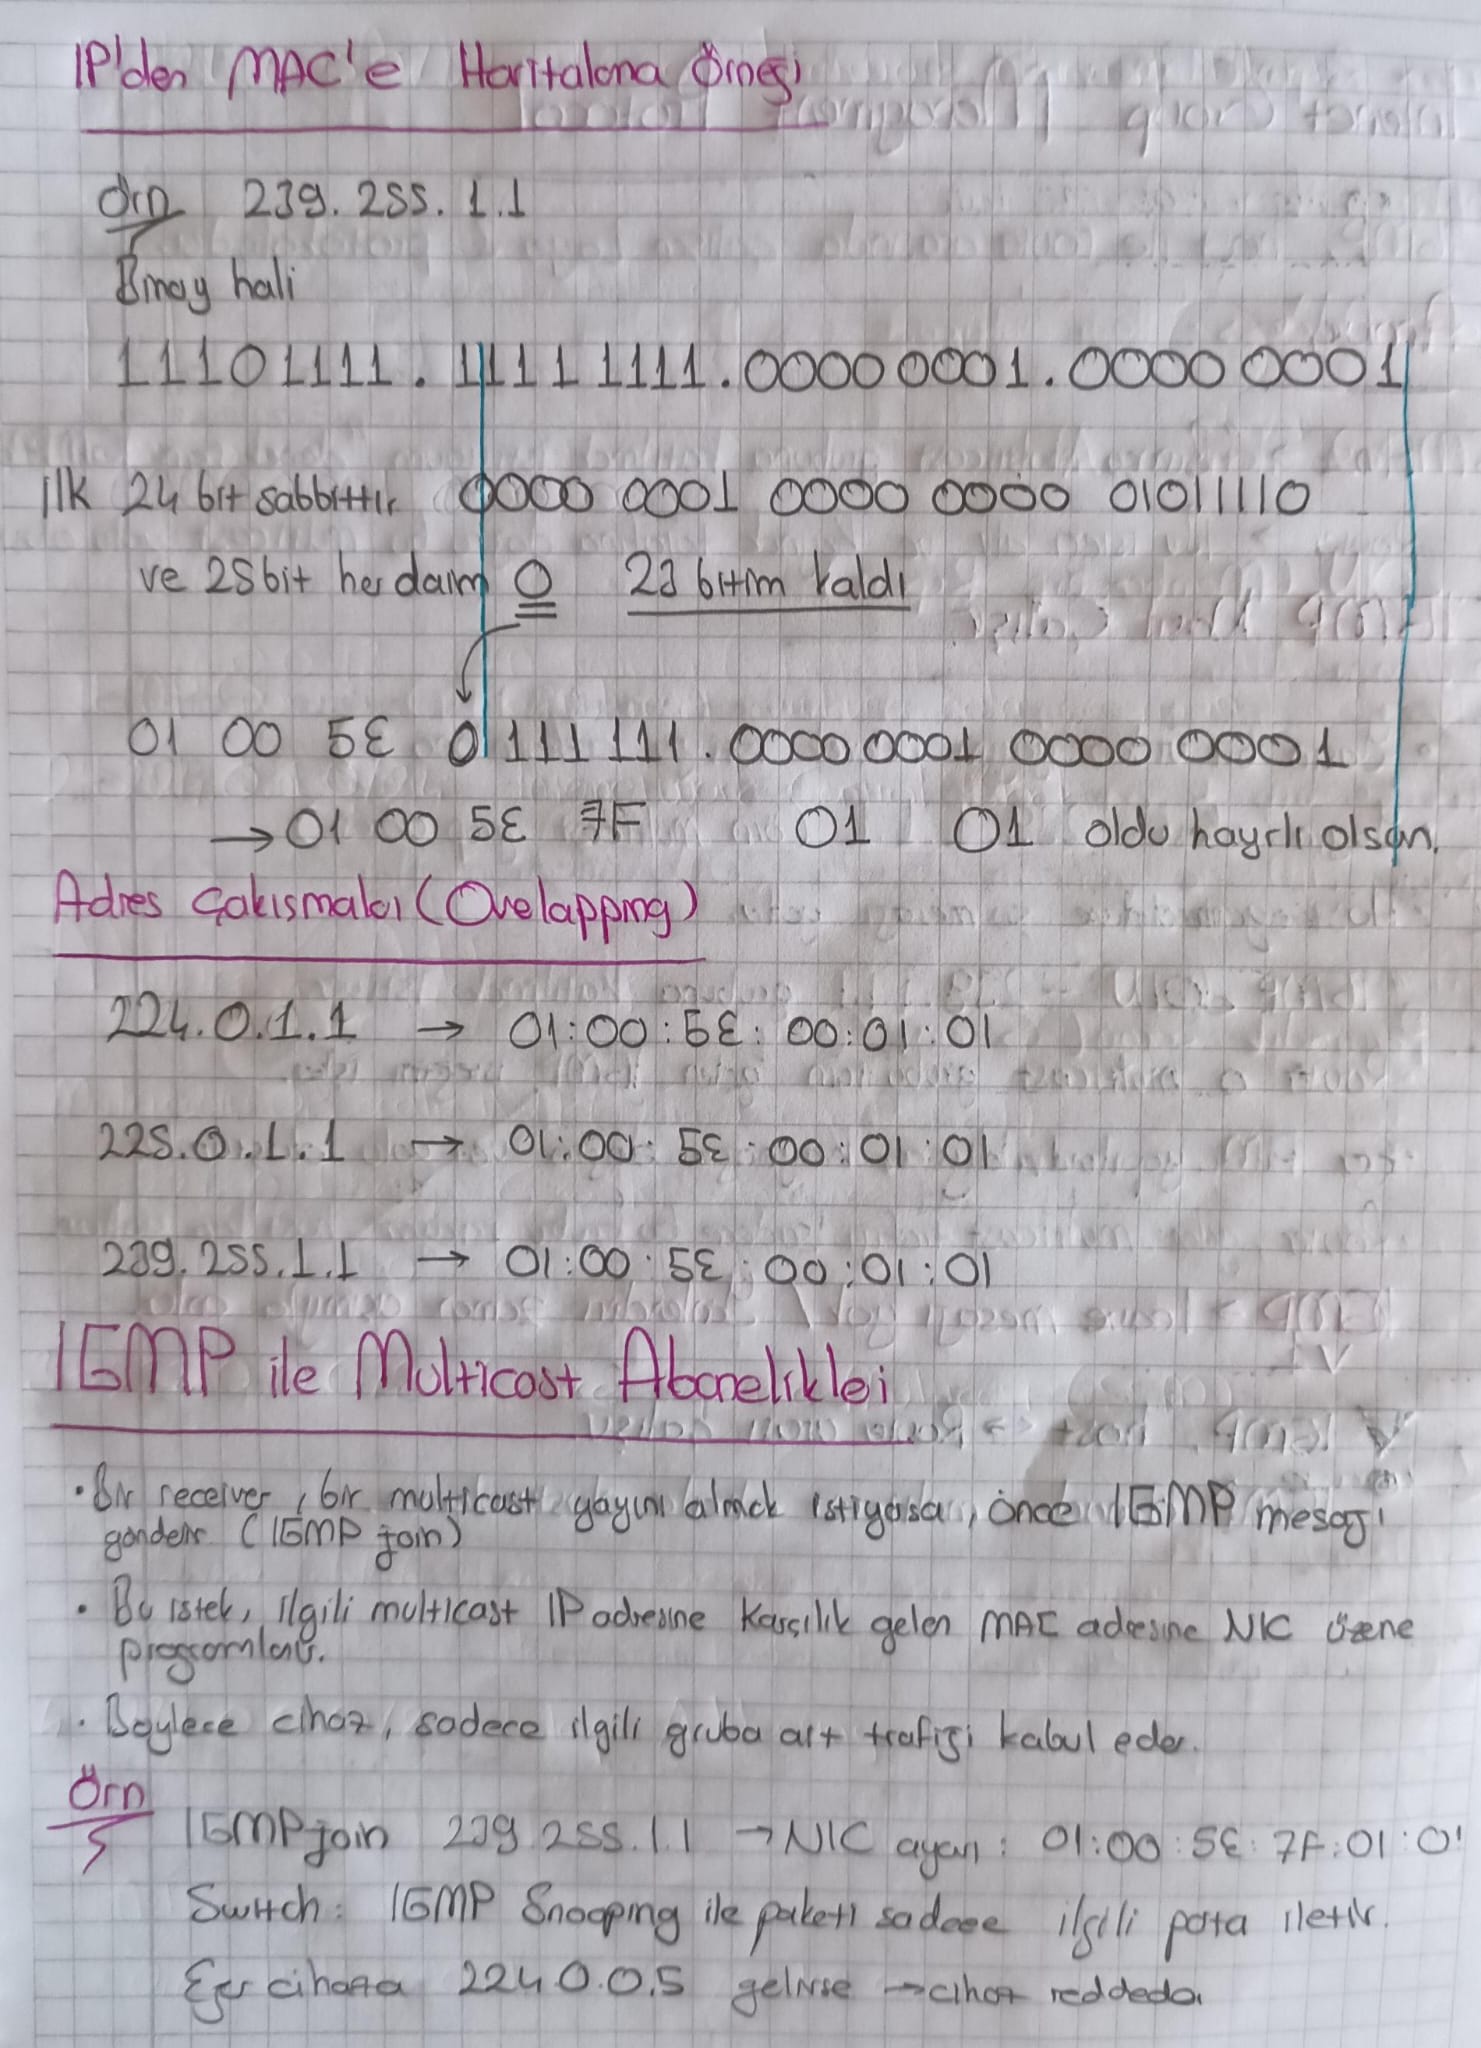 IP'den MAC'e Haritalama Örneği
Örn 239.255.1.1
Binary hali
11101111.11111111.00000001.00000001
ilk 24 bit sabbittir 0000 0001 0000 0000 01011110
ve 25bit her daim 0 23 bitim kaldı
01 00 5E 0111 111.0000 0001 0000 0001
→01 00 5E 7F 01 01 oldu hayırlı olsun.
Adres Çakışmaları (Overlapping)
224.0.1.1 → 01:00:5E:00:01:01
225.0.1.1 → 01:00:5E:00:01:01
239.255.1.1 → 01:00:5E:00:01:01
IGMP ile Multicast Abonelikleri
• Bir receiver, bir multicast yayını almak istiyorsa, önce IGMP mesajı
gönderir (IGMP join)
• Bu istek, ilgili multicast IP adresine karşılık gelen MAC adresine NIC üzerine
programlanır.
• Böylece cihaz, sadece ilgili gruba ait trafiği kabul eder.
Örn
IGMP join 239.255.1.1 → NIC ayarı: 01:00:5E:7F:01:01
Switch: IGMP Snooping ile paketi sadece ilgili porta iletir.
Eğer cihaza 224.0.0.5 gelirse → cihaz reddeder